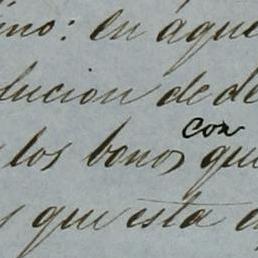 ino: en aque
lucion de de
con
los bonos que
que esta